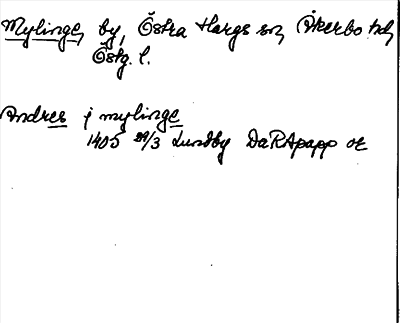 Mylinge, by, Östra Hargs sn, Åkerbo hd,
Östg. l.
Andres j mylinge
1405 29/3 Lundby DaRApapp or